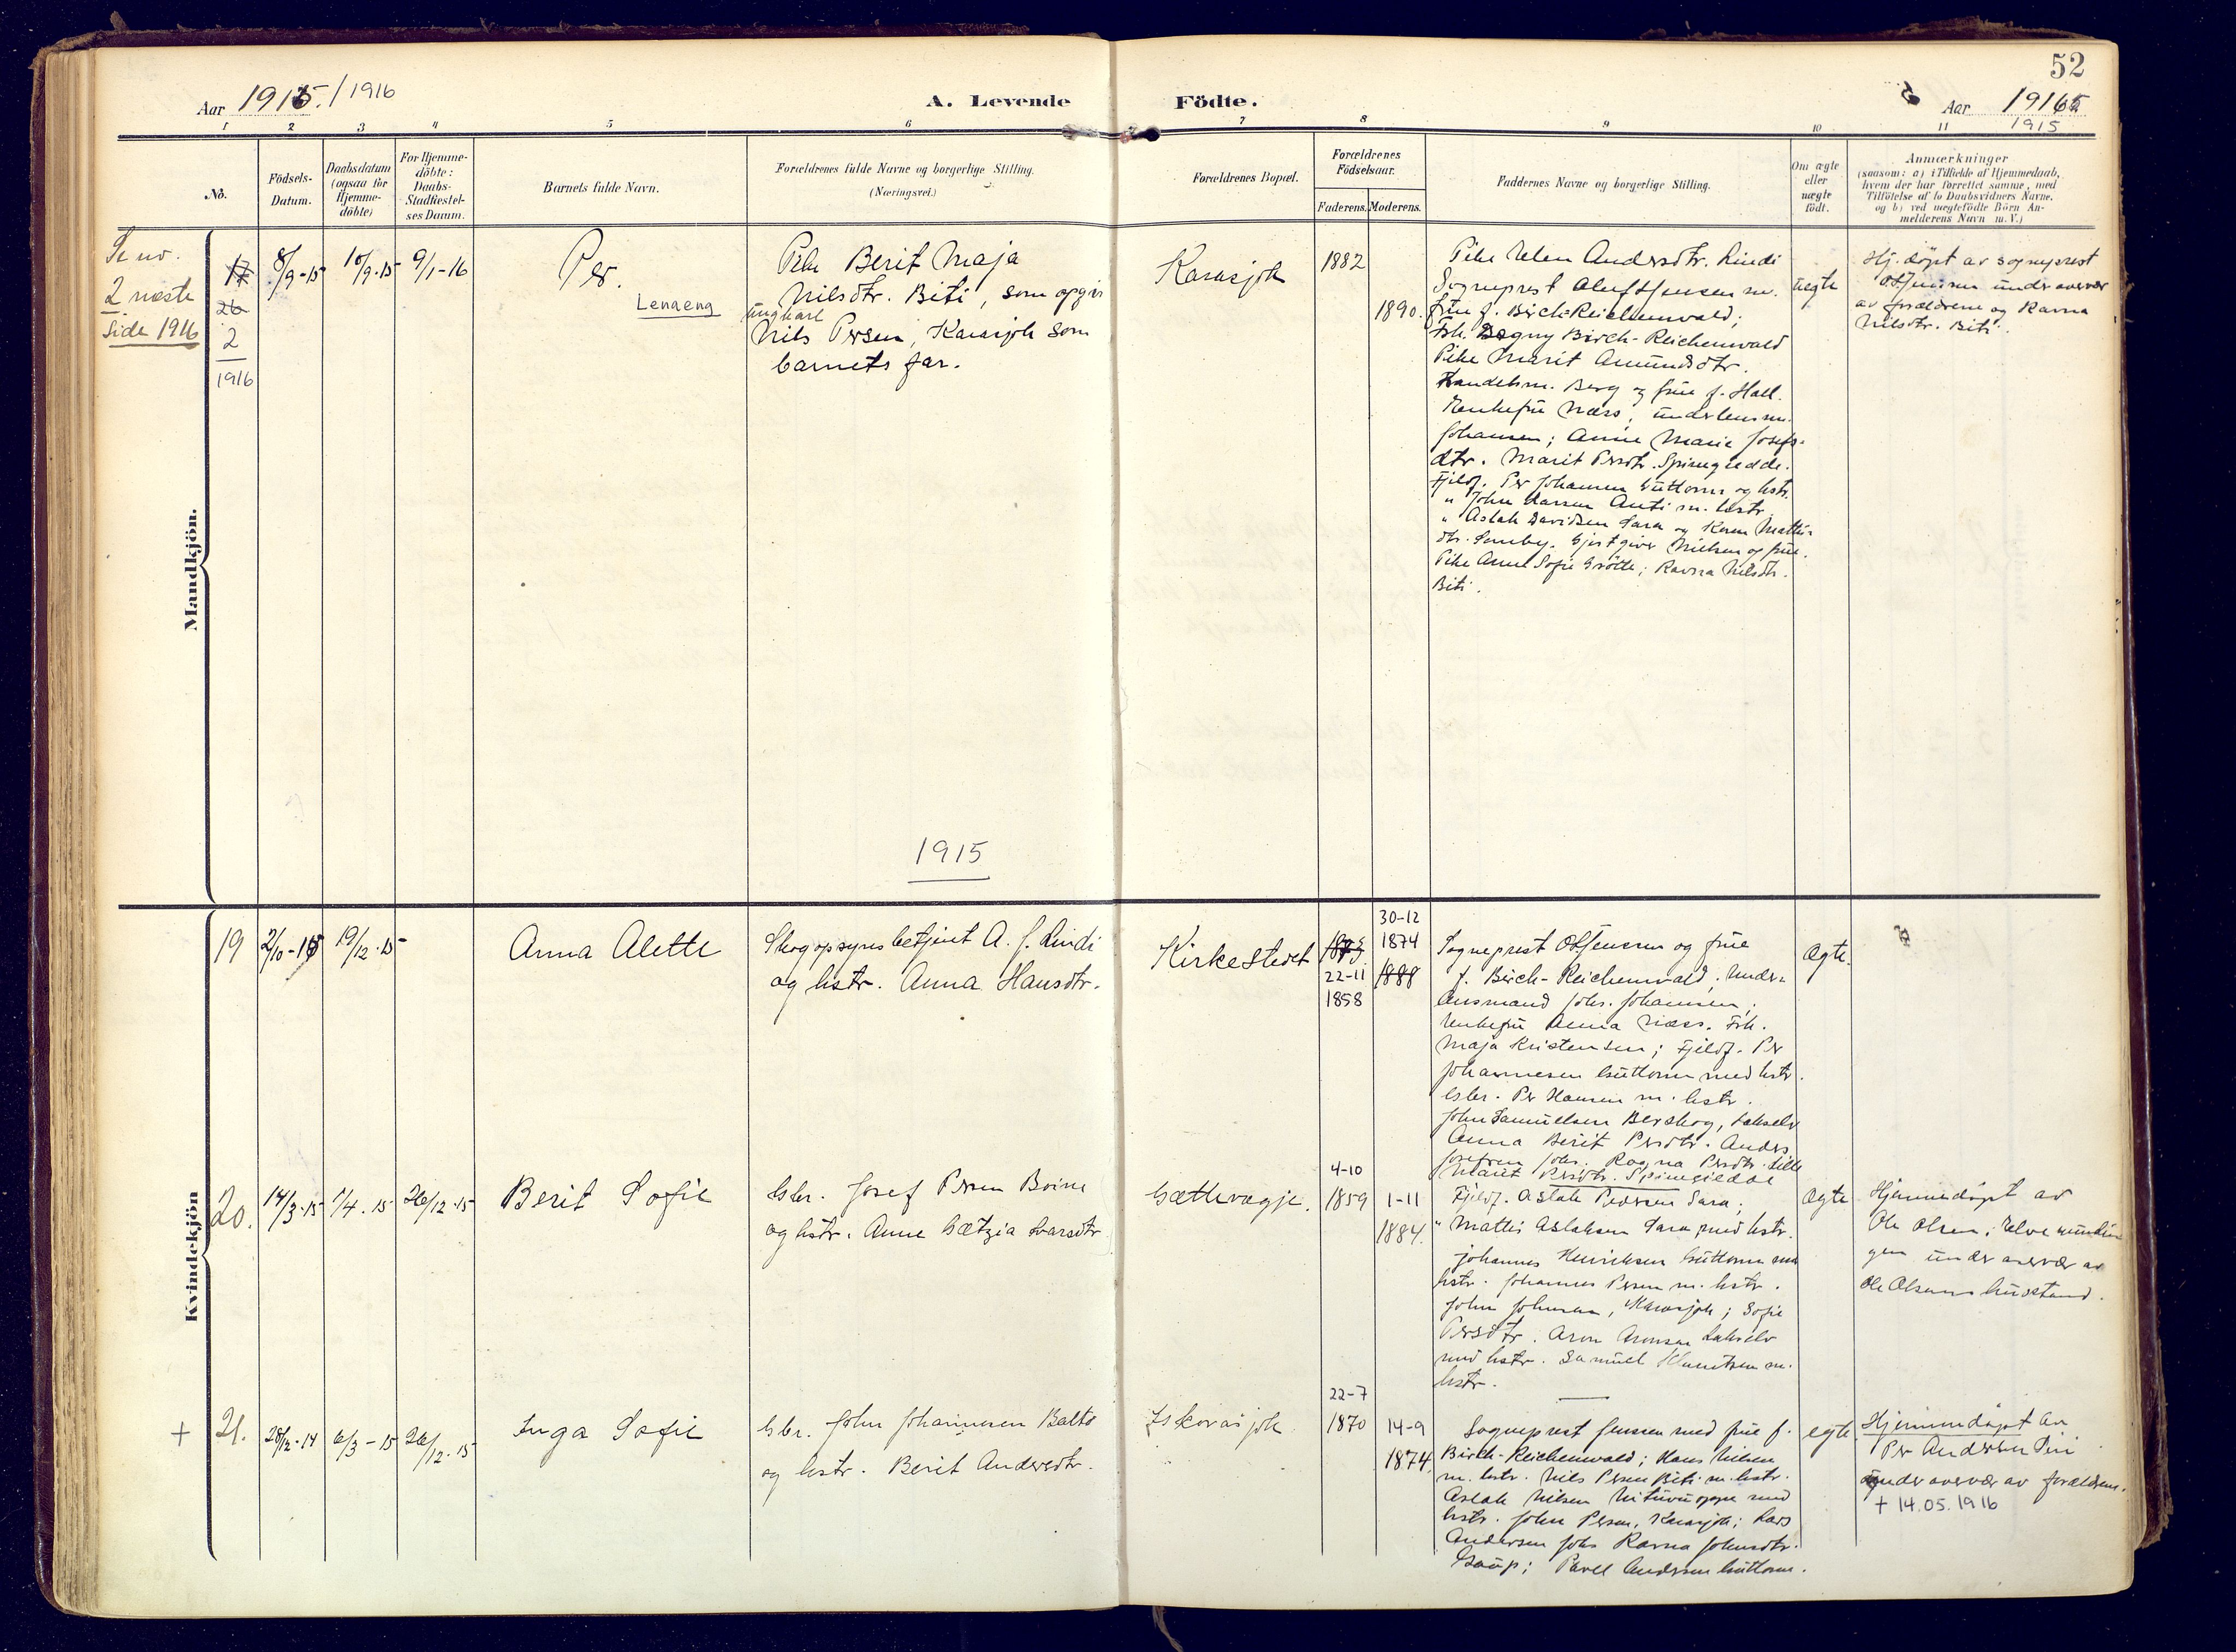 52
Aar 1915. / 1916
A. Levende Födte.
Aar 1916
1915
1 2 3 4 5 6 7 8 9 10 11
No.
Födsels-
Datum.
Daabsdatum
(ogsaa for
Hjemme-
döbte)
For Hjemme-
döbte:
Daabs-
Stadfestel-
ses Datum.
Barnets fulde Navn.
Forældrenes fulde Navne og borgerlige Stilling.
(Næringsvei.)
Forældrenes Bopæl.
Forældrenes
Födselsaar.
Faderens. Moderens.
Faddernes Navne og borgerlige Stilling.
Om ægte
eller
uægte
födt.
Anmærkninger
(saasom: a) i Tilfælde af Hjemmedaab,
hvem der har forrettet samme, med
Tilföielse af to Daabsvidners Navne.
og b) ved uægtefödte Börn An-
melderens Navn m. V.)
Mandkjön.
Se nr.
2 næste
Side 1916
17
26
2
1916
8/9-15
10/9-15
9/1-16
Per.
Lenaeng
Pike Berit Maja
Nilsdtr. Biti, som opgir
ungkarl
Nils Persen, Karasjok som
barnets far.
Karasjok
1882
1890.
Pike Elen Andersdtr. Lindi
Sogneprest Oluf Jenssen m.
frue f. Birch-Reichenwald;
Frk. Dagny Birch-Reichenwald
Pike Marit Amundsdtr.
Handelsm. Berg og frue f. Hall.
Enkefru Næss, underlensm.
Johansen; Anne Marie Josefs-
dtr. Marit Persdtr. Spinegiedde.
Fjeldf. Per Johannesen Guttorm og hstr.
" John Larsen Anti m. hstr.
" Aslak Davidsen Sara og Karen Mathis-
dtr. Somby. Gjestgiver Nielsen og frue.
Pike Anne Sofie Grötte; Ravna Nilsdtr.
Biti.
uegte
Hj. döpt av sogneprest
O Jenssen under overvær
av forældrene og Ravna
Nilsdtr. Biti.
1915
Kvindekjön
19
2/10-15
19/12-15
Anna Alette
Skogopsynsbetjent A. J. Lindi
og hstr. Anna Hansdtr.
Kirkestedet
1873
22-11
1858
30-12
1874
1888
Sogneprest O Jenssen og frue
f. Birch-Reichenwald; Under-
lensmand Johs. Johannsen;
Enkefru Anna Næss. Frk.
Maja Kristensen; Fjeldf. Per
Johannesen Guttorm med hstr.
Gbr. Per Hansen m. hstr.
John Samuelsen Berskog, Lakselv
Anna Berit Persdtr. Anders
Josefsen Johs. Ragna Persdtr. Lille
Marit Persdtr. Spinegiedde
Ægte.
20.
14/3-15
7/4.15
26/12.15
Berit Sofie
Gbr. Josef Persen Boine
og hstr. Anne Gætzia Larsdtr
Gættevagje.
4-10
1859
1-11
1884.
Fjeldf. Aslak Pedersen Sara;
" Mattis Aslaksen Sara med hstr.
Johannes Henriksen Guttorm m
hstr. Johannes Persen m. hstr.
John Johnsen, Karasjok; Sofie
Persdtr. Aron Aronsen Lakselv
med hstr. Samuel Klemetsen m.
hstr.
Ægte
Hjemmedöpt av
Ole Olsen, Elvemundin
gen under overvær av
Ole Olsens husstand.
+
21.
28/12-14
6/3-15
26/12.15
Inga Sofie
Gbr. John Johannesen Balto
og hstr. Berit Andersdtr.
Iskorasjok
22-7
1870
14-9
1874.
Sogneprest Jenssen med frue f.
Birch-Reichenwald; Hans Nilsen
m. hstr. Nils Persen Biti m. hstr.
Aslak Nilsen Nituvuoppe med
hstr. John Persen, Karasjok; Lars
Andersen Johs Ravna Johnsdtr.
Gaup; Pavel Andersen Guttorm.
egte
Hjemmedöpt av
Per Andersen Piri
under overvær av forældrene.
+ 14.05.1916